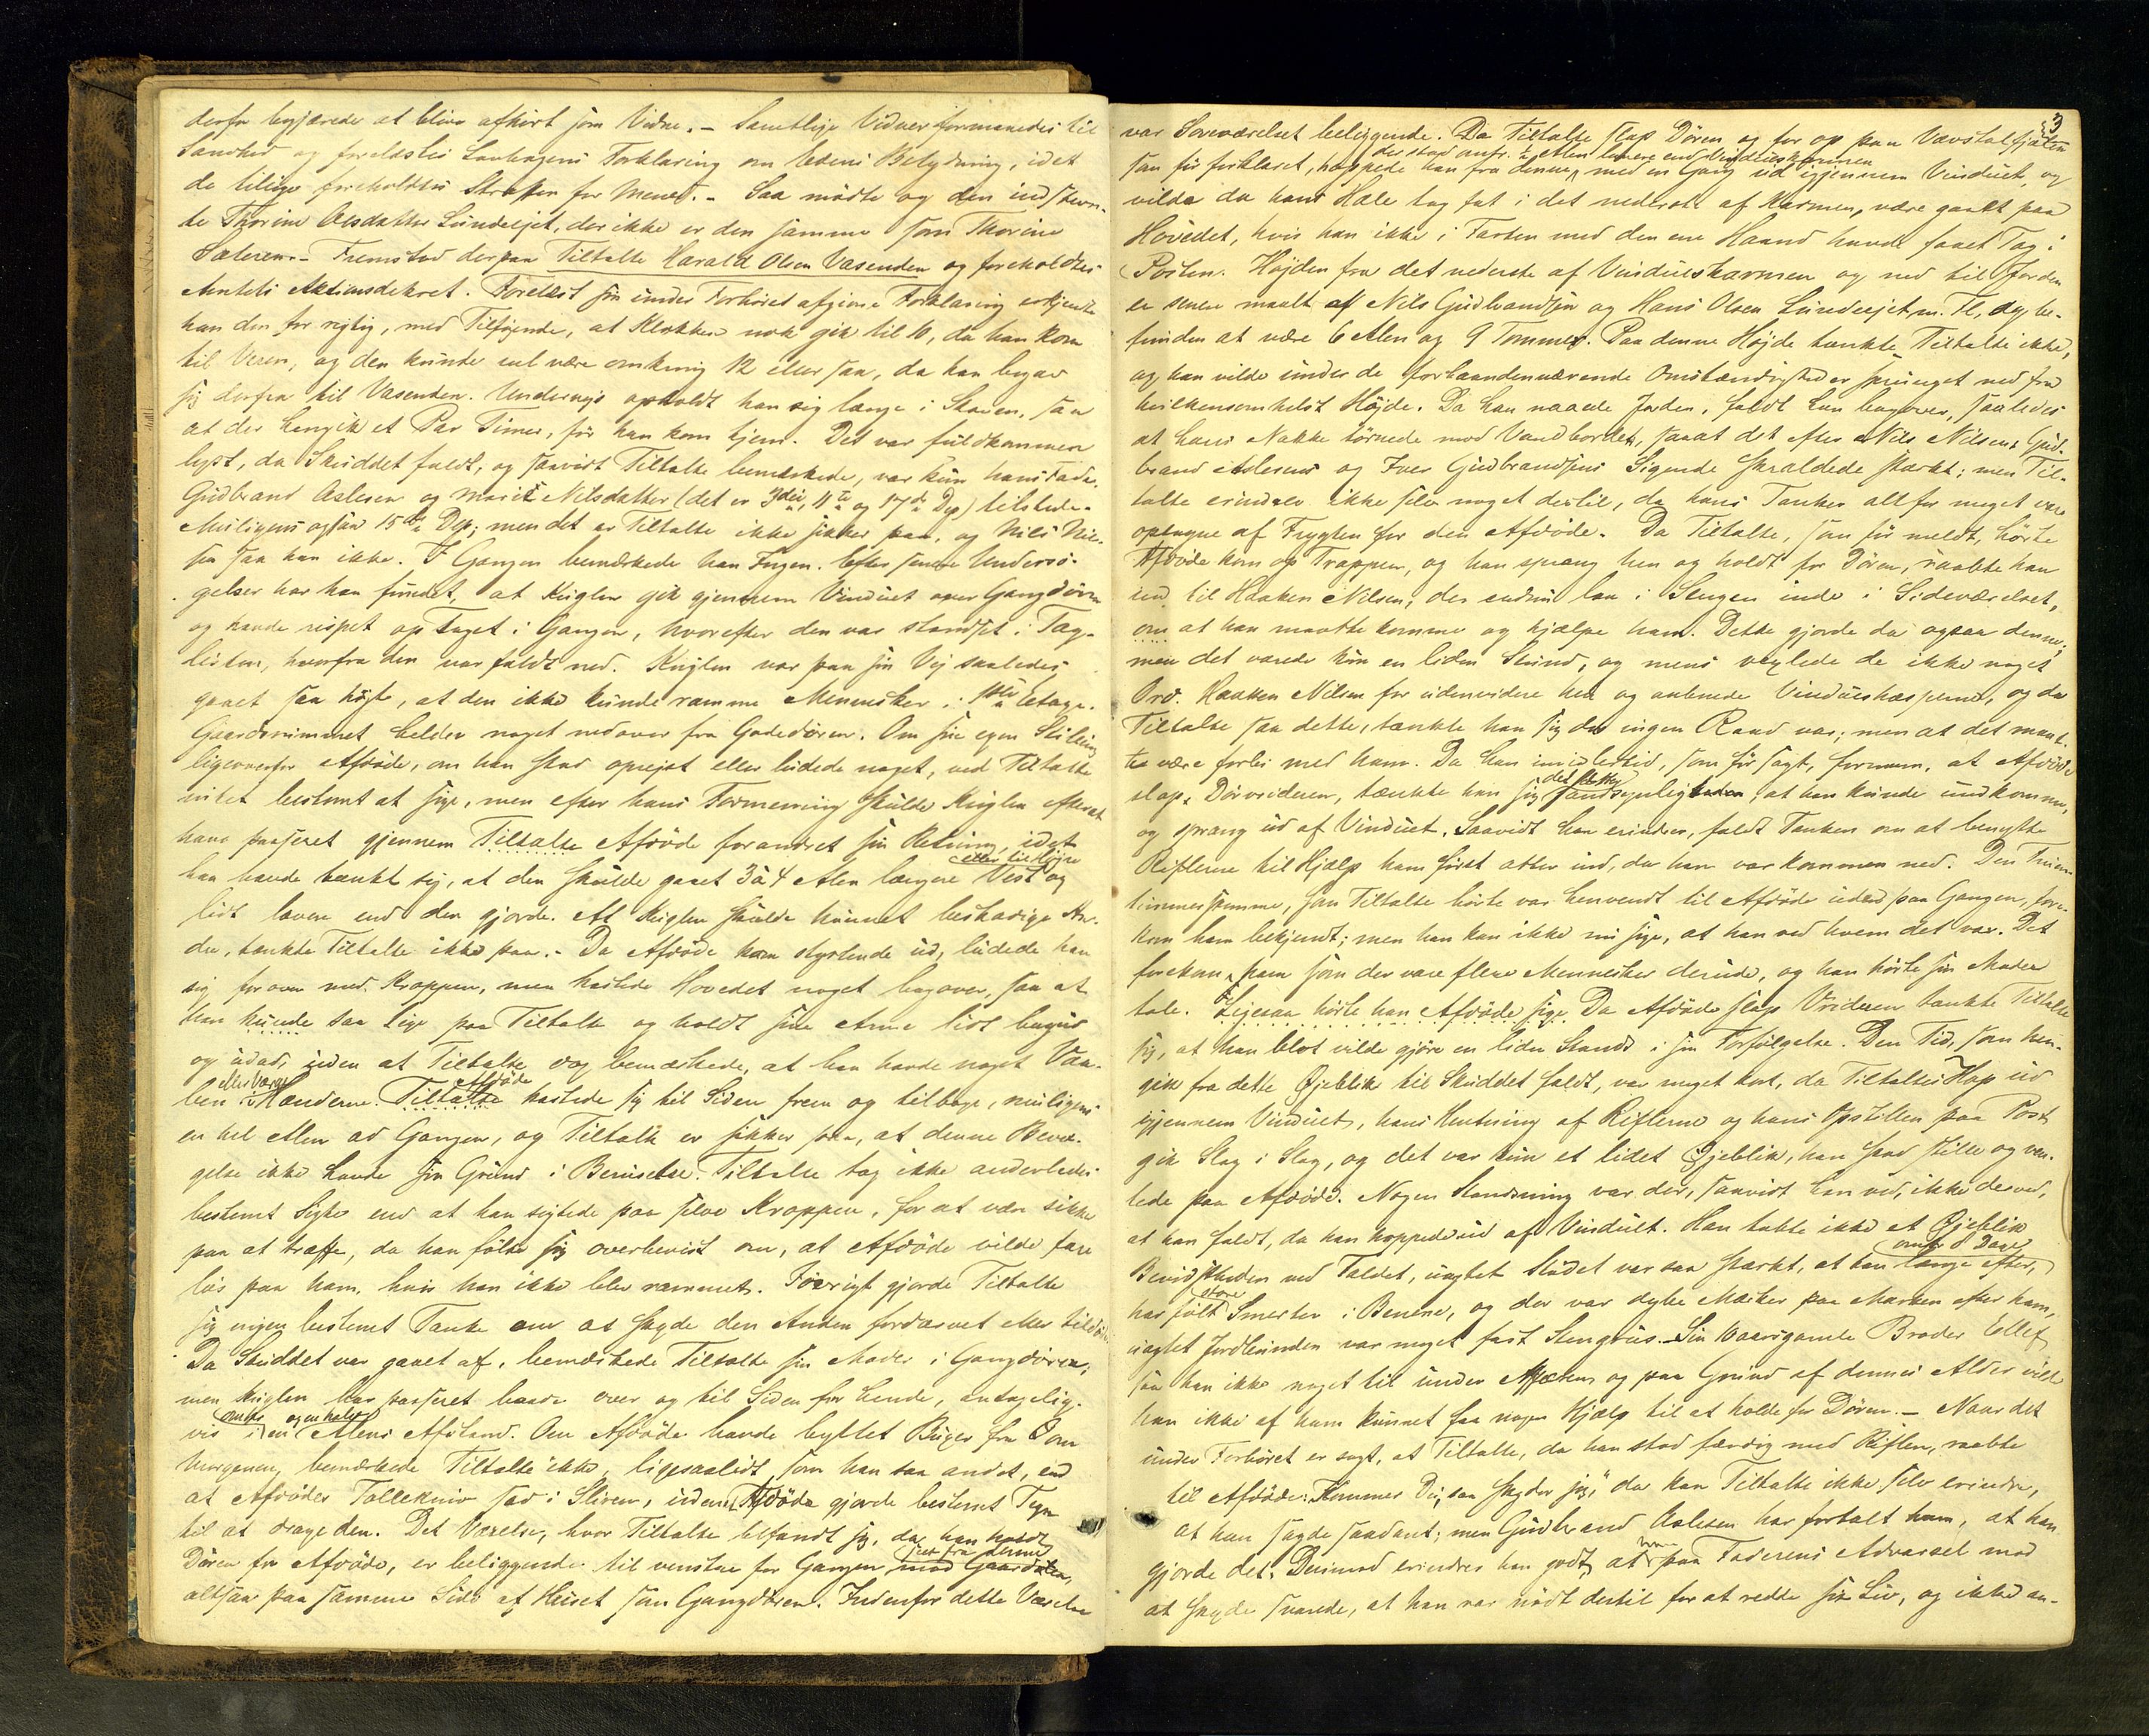 derfor begjærede at blive afhørt som Vidne. – Samtlige Vidner formanedes til
Sandhed og forelæstes Lovbogens Forklaring om Edens Betydning, idet
de tillige foreholdtes Straffen for Mened. – Saa mødte og den indstevn-
te Thorine Olsdatter Lundesjet, der ikke er den samme som Thorine
Sæteren. – Fremstod derpaa Tiltalte Harald Olsen Vasenden og foreholdtes
Amtets Aktionsdekret. Forelæst sin under Forhøret afgivne Forklaring erkjendte
han den for rigtig, med Tilføjende, at Klokken nok gik til 10, da han kom
til Veren, og den kunde vel være omkring 12 eller saa, da han begav
sig derfra til Vasenden. Underveis opholdt han sig længe i Skoven, saa
at der hengik et Par Timer, før han kom hjem. Det var fuldkommen
lyst, da Skuddet faldt, og saavidt Tiltalte bemærkede, var kun hans Fader,
Gudbrand Aslesen og Marit Nilsdatter (det er 3die, 11te og 17de Dep) tilstede.
Muligens ogsaa 15de Dep; men det er Tiltalte ikke sikker paa, og Nils Nil-
sen saa han ikke. I Gangen bemærkede han Ingen. Efter senere Undersø-
gelser har han fundet, at Kuglen gik gjennem Vinduet over Gangdøren
og havde rispet op Taget i Gangen, hvorefter den var standset i Tag-
listen, hvorfra den var faldt ned. Kuglen var paa sin Vej saaledes
gaaet saa højt, at den ikke kunde ramme Mennesker i 1ste Etage.
Gaardsrummet helder noget nedover fra Gadedøren. Om sin egen Stilling
ligeoverfor Afdøde, om han stod oprejst eller ludede noget, ved Tiltalte
intet bestemt at sige, men efter hans Formening skulde Kuglen efterat
have passeret gjennem Tiltalte Afdøde forandret sin Retning, idet
eller til Højre
han havde tænkt sig, at den skulde gaaet 3 à 4 Alen længere Vest og
lidt lavere end den gjorde. At Kuglen skulde kunnet beskadige An-
dre, tænkte Tiltalte ikke paa. – Da Afdøde kom styrtende ud, ludede han
sig forover med Kroppen, men kastede Hovedet noget bagover, saa at
han kunde saa lige paa Tiltalte og holdt sine Arme lidt bagud
og udad, uden at Tiltalte dog bemærkede, at han havde noget Vaa-
eller Værge Afdøde
ben i Hænderne. Tiltalte kastede sig til Siden frem og tilbage, muligens
en hel Alen ad Gangen, og Tiltalte er sikker paa, at denne Bevæ-
gelse ikke havde sin Grund i Beruselse. Tiltalte tog ikke anderledes
bestemt Sigte end at han sigtede paa selve Kroppen, for at være sikker
paa at træffe, da han følte sig overbevist om, at Afdøde vilde fare
løs paa ham, hvis han ikke blev rammet. Forøvrigt gjorde Tiltalte
sig ingen bestemt Tanke om at skyde den Anden fordærvet eller tildøde.
Da Skuddet var gaaet af, bemærkede Tiltalte sin Moder i Gangdøren;
men Kuglen har passeret baade over og til Siden for hende, antagelig-
omtr og en halv
vis i en Alens Afstand. Om Afdøde havde byttet Buxer fra om
Morgenen, bemærkede Tiltalte ikke, ligesaalidt som han saa andet, end
at Afdødes Tollekniv sad i Sliren, uden Afdøde gjorde bestemt Tegn
til at drage den. Det Værelse, hvor Tiltalte befandt sig, da han holdt
set fra denne
Døren for Afdøde, er beliggende til venstre for Gangen mod Gaarden,
altsaa paa samme Side af Huset som Gangdøren. Indenfor dette Værelse
3
var Soveværelset beliggende. Da Tiltalte slap Døren og for op paa Vævstolfjælen
der stod omtr. ½ Alen lavere end Vindueskarmen
som før forklaret, hoppede han fra denne, med en Gang ud igjennem Vinduet, og
vilde da hans Hæle tog fat i det nederste af Karmen, være gaaet paa
Hovedet, hvis han ikke i Farten med den ene Haand havde faaet Tag i
Posten. Højden fra det nederste af Vindueskarmen og ned til Jorden
er senere maalt af Nils Gudbrandsen og Hans Olsen Lundesjet m. Fl., og be-
funden at være 6 Alen og 9 Tommer. Paa denne Højde tænkte Tiltalte ikke,
og han vilde under de forhaandenværende Omstændigheder sprunget ned fra
hvilkensomhelst Højde. Da han naaede Jorden, faldt han bagover, saaledes
at hans Nakke tørnede mod Vandbordet, saaat det efter Nils Nilsens, Gud-
brand Aslesens og Iver Gudbrandsens Sigende skraldede stærkt; men Til-
talte erindrer ikke selv noget dertil, da hans Tanker alt for meget vare
optagne af Frygten for den Afdøde. Da Tiltalte, som før meldt, hørte
Afdøde kom op Trappen, og han sprang hen og holdt for Døren, raabte han
ind til Haaken Nilsen, der endnu laa i Sengen inde i Sideværelset,
om at han maatte komme og hjælpe ham. Dette gjorde da ogsaa denne;
men det varede kun en liden Stund, og mens vexlede de ikke noget
Ord. Haaken Nilsen for udenvidere hen og aabnede Vindueshasperne, og da
Tiltalte saa dette, tænkte han sig der ingen Raad var; men at det maat-
te være forbi med ham. Da han imidlertid, som før sagt, fornam, at Afdøde
det slette
slap Dørvrideren, tænkte han sig sandsynligheden, at han kunde undkomme,
og sprang ud af Vinduet. Saavidt han erindrer, faldt Tanken om at benytte
Riflerne til Hjælp ham først atter ind, da han var kommen ned. Den Fruen-
timmerstemme, som Tiltalte hørte var henvendt til Afdøde ude paa Gangen, fore-
kom ham bekjendt; men han kan ikke nu sige, at han ved hvem det var. Det
forekom ham som der vare flere Mennesker derude, og han hørte sin Moder
tale. Ligesaa hørte han Afdøde sige Da Afdøde slap Vrideren tænkte Tiltalte
sig, at han blot vilde gjøre en liden Stands i sin Forfølgelse. Den Tid, som hen-
gik fra dette Øjeblik til Skuddet faldt, var meget kort, da Tiltaltes Hop ud
igjennem Vinduet, hans Hentning af Riflerne og hans Opstillen paa Post
gik Slag i Slag, og det var kun et lidet Øjeblik, han stod stille og ven-
tede paa Afdøde. Nogen Standsning var der, saavidt han ved, ikke derved,
at han faldt, da han hoppede ud af Vinduet. Han tabte ikke et Øjeblik
omtr 8 Dage
Bevidstheden ved Faldet, uagtet Stødet var saa stærkt, at han længe efter,
store
har følt Smerter i Benene, og der var dybe Mærker paa Marken efter ham,
uagtet Jordbunden var meget fast Stengrus. Sin aarsgamle Broder Ellef
saa han ikke noget til under Affæren og paa Grund af dennes Alder vilde
han ikke af ham kunnet faa nogen Hjælp til at holde for Døren. – Naar det
under Forhøret er sagt, at Tiltalte, da han stod færdig med Riflen, raabte
til Afdøde: "Kommer Du, saa skyder jeg," da kan Tiltalte ikke selv erindre,
at han sagde saadant; men Gudbrand Aslesen har fortalt ham, at han
han
gjorde det. Derimod erindrer han godt, at paa Faderens Advarsel mod
at skyde svarede, at han var nødt dertil for at redde sit Liv, og ikke an-